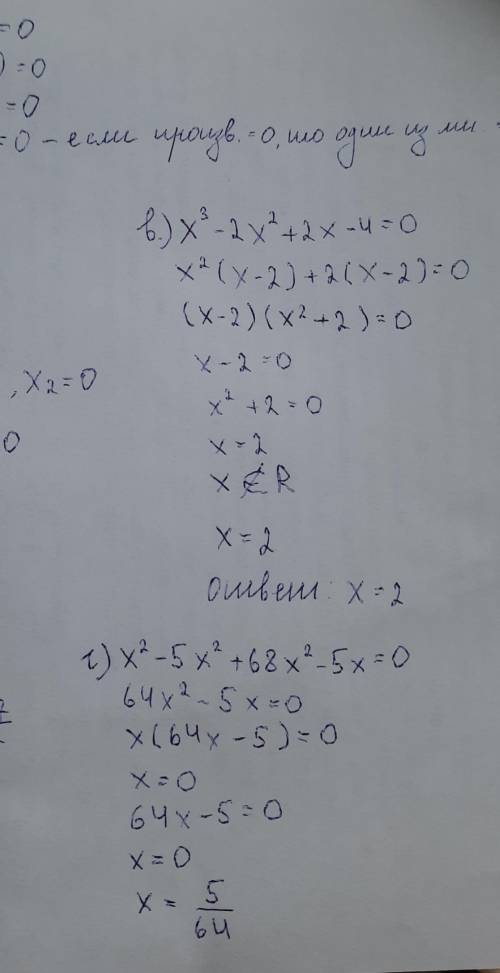 =0
) =0
=0
=0 – если произв. =0, то один из мн.
, x₂=0
0
в.) x³ - 2x² + 2x - 4 = 0
x² (x-2) + 2(x-2) = 0
(x-2) (x² + 2) = 0
x - 2 = 0
x² + 2 = 0
x = 2
x ∉ R
x = 2
ответ: x = 2
г) x² - 5x² + 68x² - 5x = 0
64x² - 5x = 0
x(64x - 5) = 0
x = 0
64x - 5 = 0
x = 0
x = 5/64